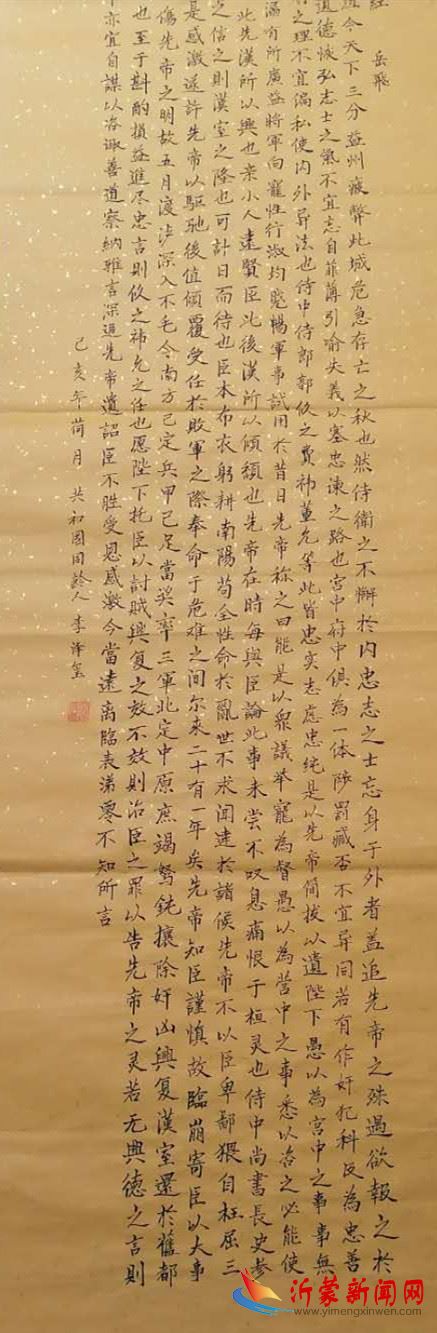 经 岳飛
道今天下三分益州疲弊此城危急存亡之秋也然侍衛之不懈於内忠志之士忘身于外者盖追先帝之殊過欲報之於
道德恢弘志士之氣不宜忘自菲薄引喻失義以塞忠諫之路也宫中府中俱為一体陟罰臧否不宜异同若有作奸犯科反為忠善
之理不宜偏私使内外异法也侍中侍郎郭攸之費祎董允等此皆忠实志慮忠纯是以先帝简拔以遺陛下愚以為宫中之事事無
漏有所廣益將軍向寵性行淑均曉暢軍事試用於昔日先帝称之曰能是以衆議举寵為督愚以為营中之事悉以咨之必能使
此先漢所以興也亲小人遠賢臣此後漢所以傾頹也先帝在時每與臣論此事未尝不叹息痛恨于桓灵也侍中尚書長史参
之信之則漢室之隆也可計日而待也臣本布衣躬耕南陽苟全性命於亂世不求闻達於諸侯先帝不以臣卑鄙猥自枉屈三
是感激遂許先帝以驱驰後值傾覆受任於敗軍之際奉命于危难之间尔来二十有一年矣先帝知臣謹慎故臨崩寄臣以大事
傷先帝之明故五月渡泸深入不毛今南方已定兵甲已足當奖率三軍北定中原庶竭駑鈍攘除奸凶興复漢室還於舊都
也至于斟酌損益進尽忠言則攸之祎允之任也愿陛下托臣以討贼興复之效不效則治臣之罪以告先帝之灵若无興德之言則
亦宜自謀以咨诹善道察納雅言深追先帝遺詔臣不胜受恩感激今當遠离臨表涕零不知所言
己亥年荷月 共和國同龄人 李泽玺
沂蒙新闻网
www.yimengxinwen.com